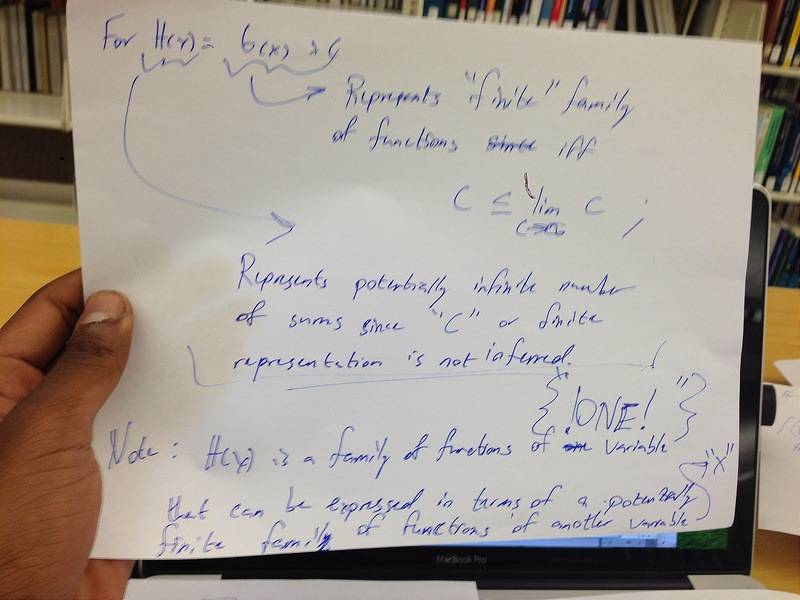 For H(x) = G(x) + C
Represents "finite" family
of functions since iff
C ≤ lim C ;
C→∞
Represents potentially infinite number
of sums since "C" or finite
representation is not inferred.
{ "!ONE!" }
Note: H(x) is a family of functions of one variable
"x"
that can be expressed in terms of a potentially
finite family of functions of another variable
MacBook Pro